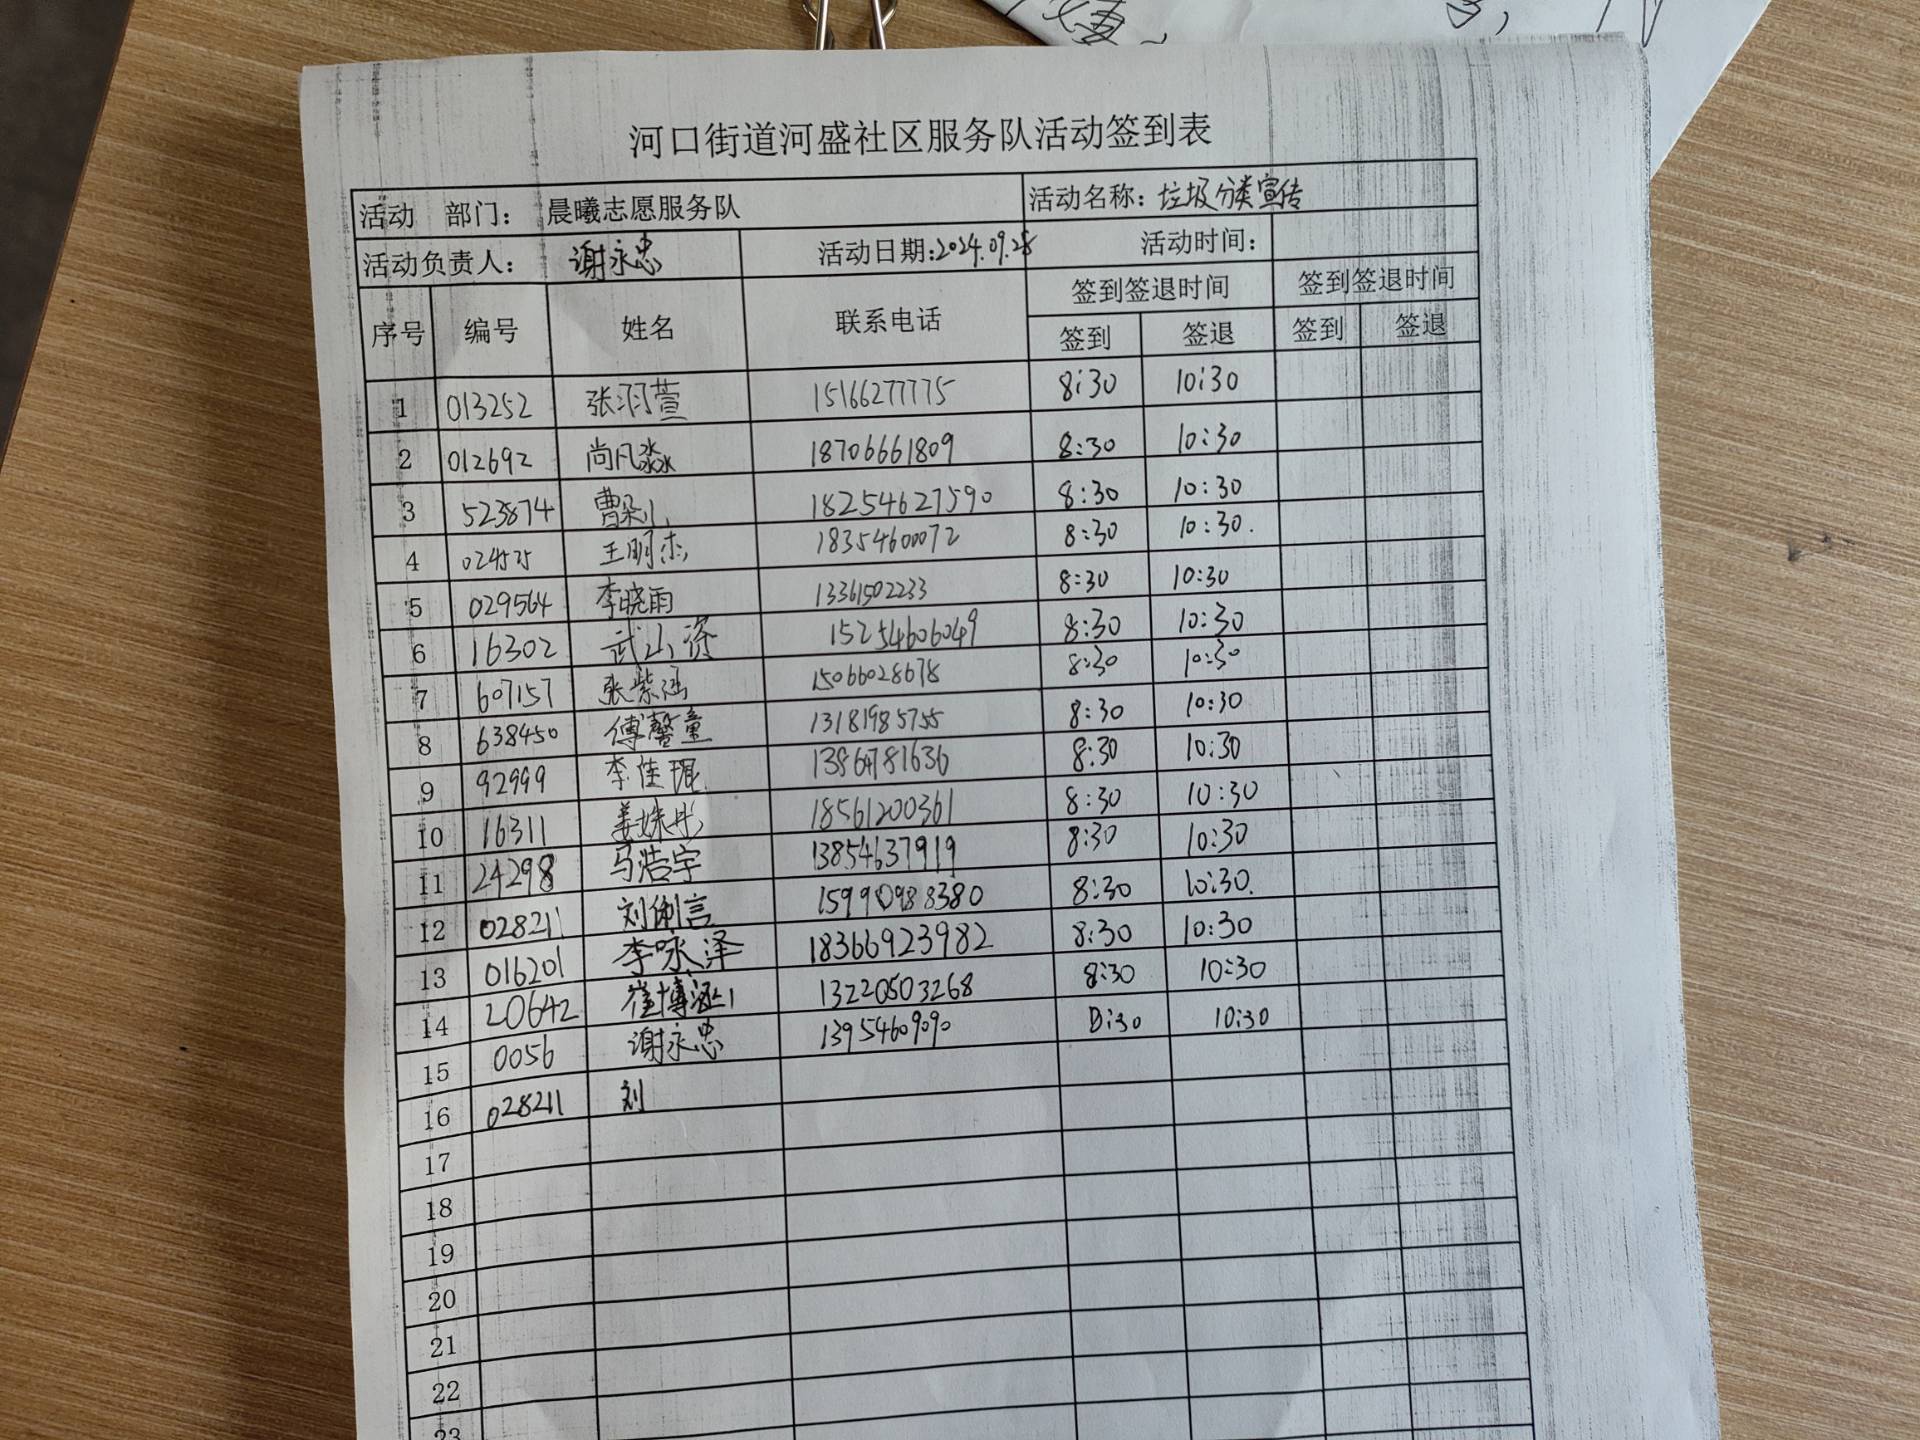 河口街道河盛社区服务队活动签到表
活动 部门： 晨曦志愿服务队 活动名称：垃圾分类宣传
活动负责人： 谢永忠 活动日期:2024.09.28 活动时间：
序号 编号 姓名 联系电话 签到签退时间 签到签退时间
签到 签退 签到 签退
1 013252 张羽萱 15166277775 8:30 10:30
2 012692 尚凡淼 18706661809 8:30 10:30
3 523874 曹 18254627590 8:30 10:30
4 王明杰 18354600072 8:30 10:30.
5 029564 李晓雨 13361502233 8:30 10:30
6 16302 武 资 15254606049 8:30 10:30
7 607157 张紫涵 15066028678 8:30 10:30
8 638450 傅馨童 13181985755 8:30 10:30
9 92999 李佳琨 13864781636 8:30 10:30
10 16311 姜姝彤 18561200361 8:30 10:30
11 24298 马浩宇 13854637919 8:30 10:30
12 028211 刘俐言 8:30 10:30.
13 016201 李咏泽 18366923982 8:30 10:30
14 20642 崔博涵 13220503268 8:30 10:30
15 0056 谢永忠 13954609090 8:30 10:30
16 028211 刘
17
18
19
20
21
22
23